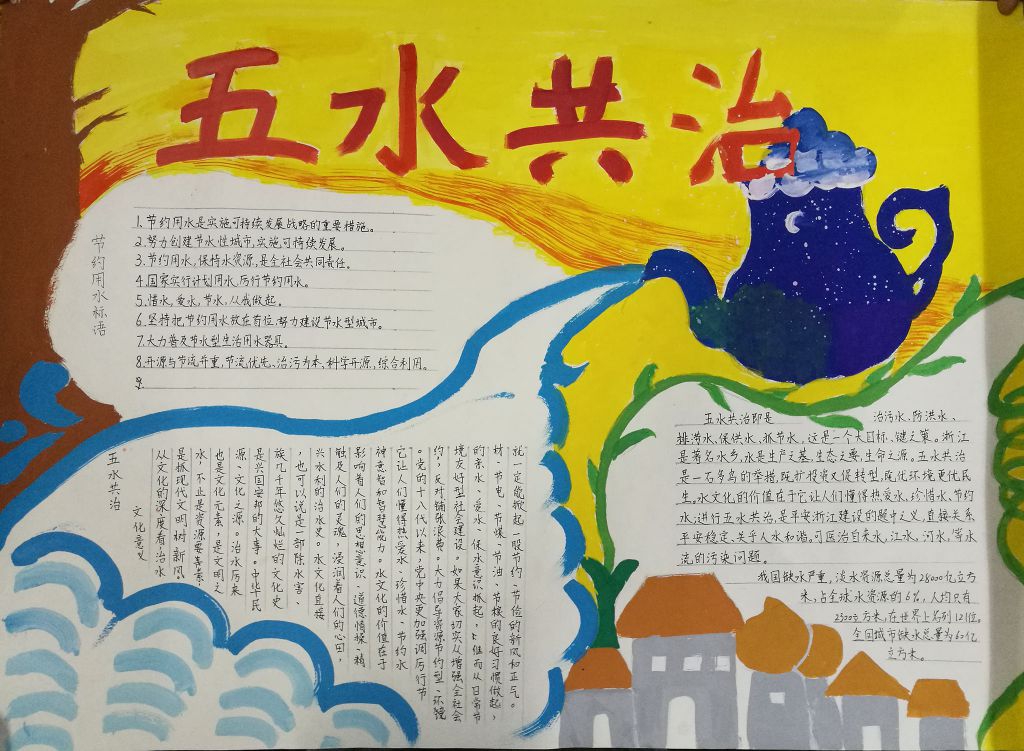 五水共治
节约用水标语
1.节约用水是实施可持续发展战略的重要措施。
2.努力创建节水性城市,实施可持续发展。
3.节约用水,保持水资源,是全社会共同责任。
4.国家实行计划用水,厉行节约用水。
5.惜水,爱水,节水,从我做起。
6.坚持把节约用水放在首位,努力建设节水型城市。
7.大力普及节水型生活用水器具。
8.开源与节流并重,节流优先、治污为本,科学开源,综合利用。
五水共治
文化意义
从文化的深度看治水
是抓现代文明,树新风。
水,不止是资源要素,
也是文化元素,是文明之
源、文化之源。治水历来
是兴国安邦的大事。中华民
族几千年悠久灿烂的文化史
,也可以说是一部除水害、
兴水利的治水义。水文化直接
触及人们的灵魂,浸润着人们的心田,
影响着人们的思想意识、道德情操、精
神意智和智慧能力。水文化的价值在于
它让人们懂得热爱水、珍惜水、节约水
。党的十八代以来,党中央更加强调厉行节
约,反对铺张浪费。大力倡导资源节约型、环
境友好型社会建设。如果大家切实从增强全社会
的亲水、爱水、保水意识抓起,继而从日常节
材、节电、节煤、节油、节粮的良好习惯做起,
就一定能掀起一股节约、节俭的新风和正气。
五水共治即是 治污水、防洪水、
排涝水、保供水、抓节水。这是一个大目标、键之策。浙江
是著名水乡,水是生产之基,生态之要,生命之源。五水共治
是一石多鸟的举措,既扩投资又促转型,既优环境更优民
生。水文化的价值在于它让人们懂得热爱水、珍惜水、节约
水,进行五水共治,是平安浙江建设的题中之义,直接关系
平安稳定、关乎人水和谐。可医治自来水,江水,河水,等水
流的污染问题。
我国缺水严重,淡水资源总量为28000亿立方
米,占全球水资源的6%,人均只有
2300立方米,在世界上名列121位。
全国城市缺水总量为60亿
立方米。